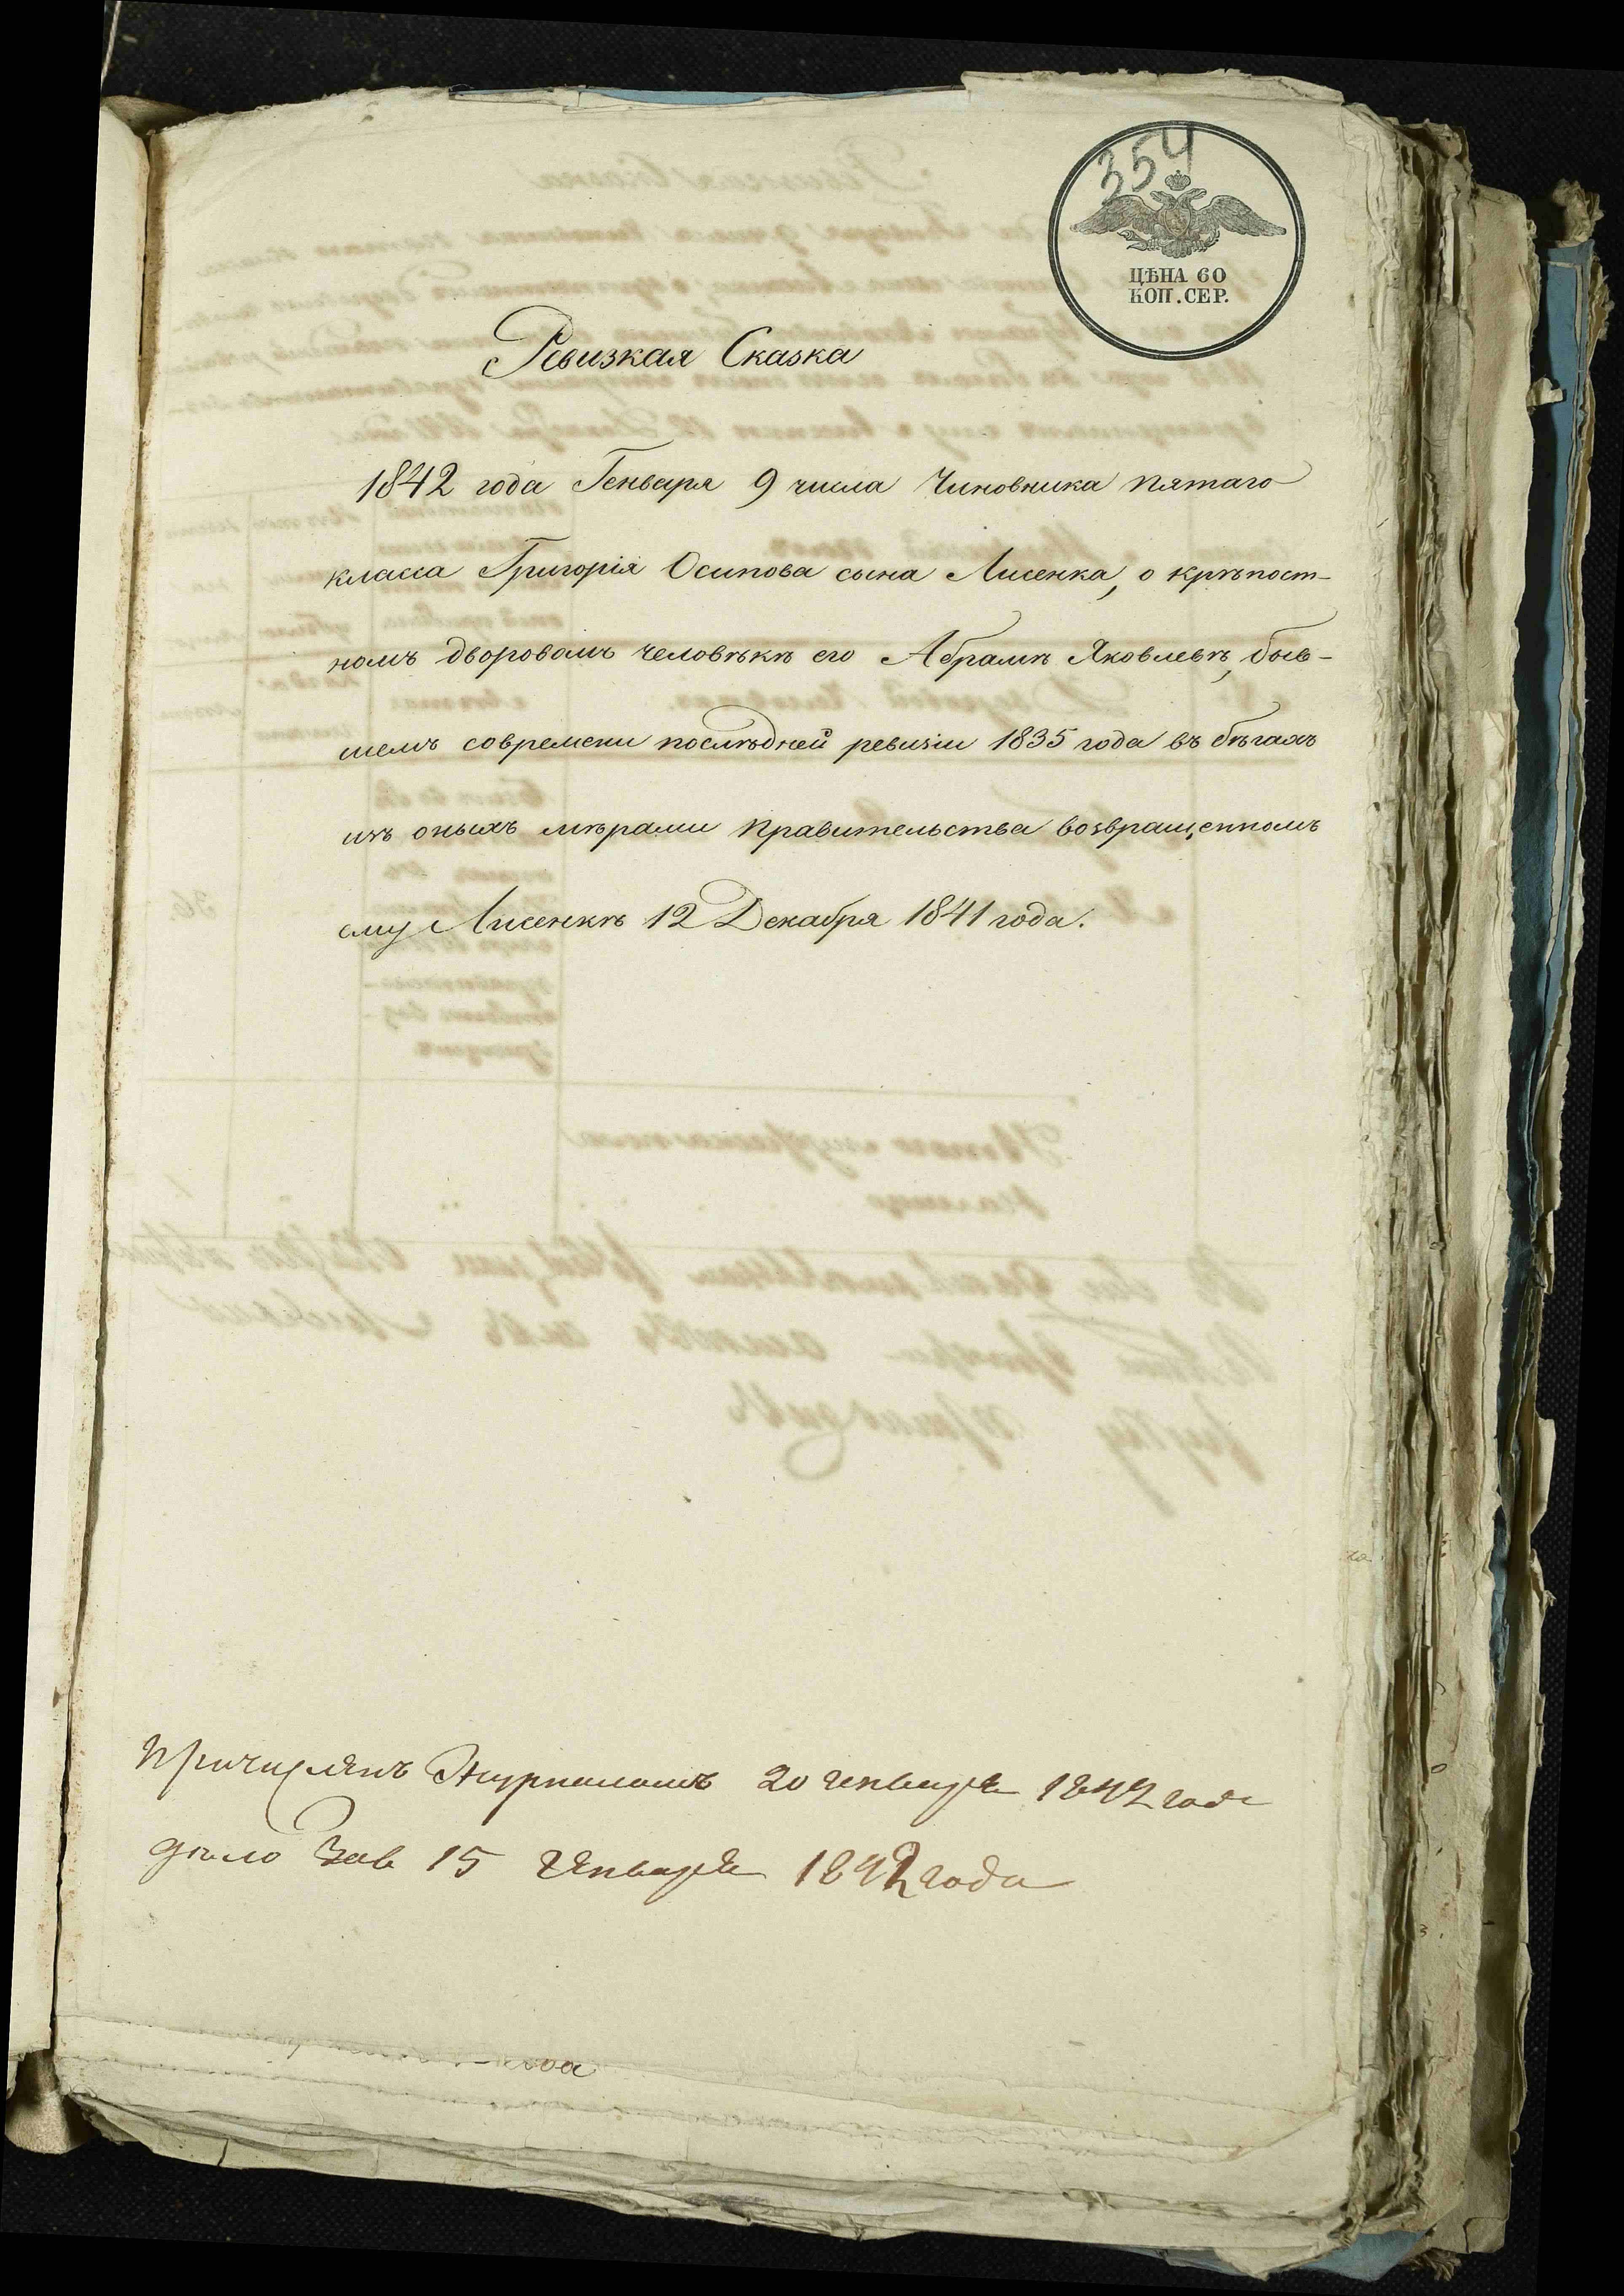 354
ЦѢНА 60
КОП. СЕР.
Ревизкая Сказка
1842 года Генваря 9 числа Чиновника пятаго
класса Григорія Осипова сына Лисенка, о крѣпост-
номъ дворовомъ человѣкѣ его Абрамѣ Яковлевѣ, быв-
шемъ современи послѣдней ревизіи 1835 года въ бѣгахъ
изъ оныхъ мѣрами правительства возвращенномъ
ему Лисенкѣ 12 Декабря 1841 года.
Причисленъ Журналомъ 20 генваря 1842 года
дѣло 15 генваря 1842 года